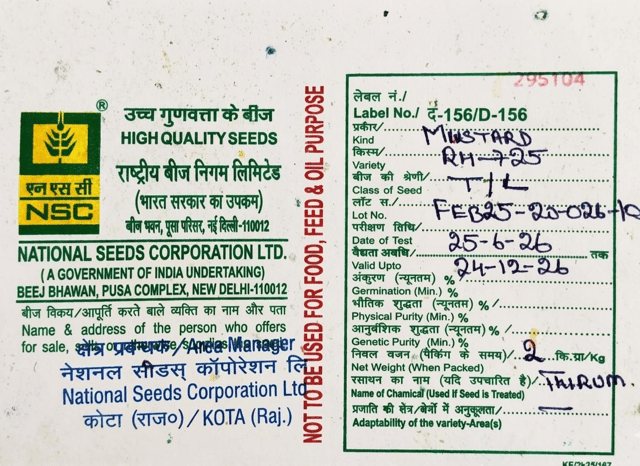 295104
®
एन एस सी
NSC
उच्च गुणवत्ता के बीज
HIGH QUALITY SEEDS
राष्ट्रीय बीज निगम लिमिटेड
(भारत सरकार का उपक्रम)
बीज भवन, पूसा परिसर, नई दिल्ली-110012
NATIONAL SEEDS CORPORATION LTD.
( A GOVERNMENT OF INDIA UNDERTAKING)
BEEJ BHAWAN, PUSA COMPLEX, NEW DELHI-110012
बीज विक्रय/आपूर्ति करते बाले व्यक्ति का नाम और पता
Name & address of the person who offers
for sale,
क्षेत्र प्रबन्धक/Area Manager
नेशनल सीडस् कॉपोरेशन लि
National Seeds Corporation Ltd
कोटा (राज०) / KOTA (Raj.)
NOT TO BE USED FOR FOOD, FEED & OIL PURPOSE
लेबल नं./
Label No./ द-156/D-156
प्रकार/
Kind MUSTARD
किस्म/
Variety RH-725
बीज की श्रेणी/
Class of Seed T/L
लॉट स./
Lot No. FEB25-20-026-10
परीक्षण तिथि/
Date of Test 25-6-26
वैद्यता अबधि/ तक
Valid Upto 24-12-26
अंकुरण (न्यूनतम) %
Germination (Min.) %
भौतिक शुद्धता (न्यूनतम) %
Physical Purity (Min.)
आनुवंशिक शुद्धता (न्यूनतम) %
Genetic Purity (Min.)
निवल वजन (पैकिंग के समय)/ 2 कि.ग्रा/Kg
Net Weight (When Packed)
रसायन का नाम (यदि उपचारित है)/ THIRUM.
Name of Chemical (Used If Seed is Treated)
प्रजाति की क्षेत्र/क्षेत्रों में अनुकूलता/ —
Adaptability of the variety-Area(s)
KF/2k25/167